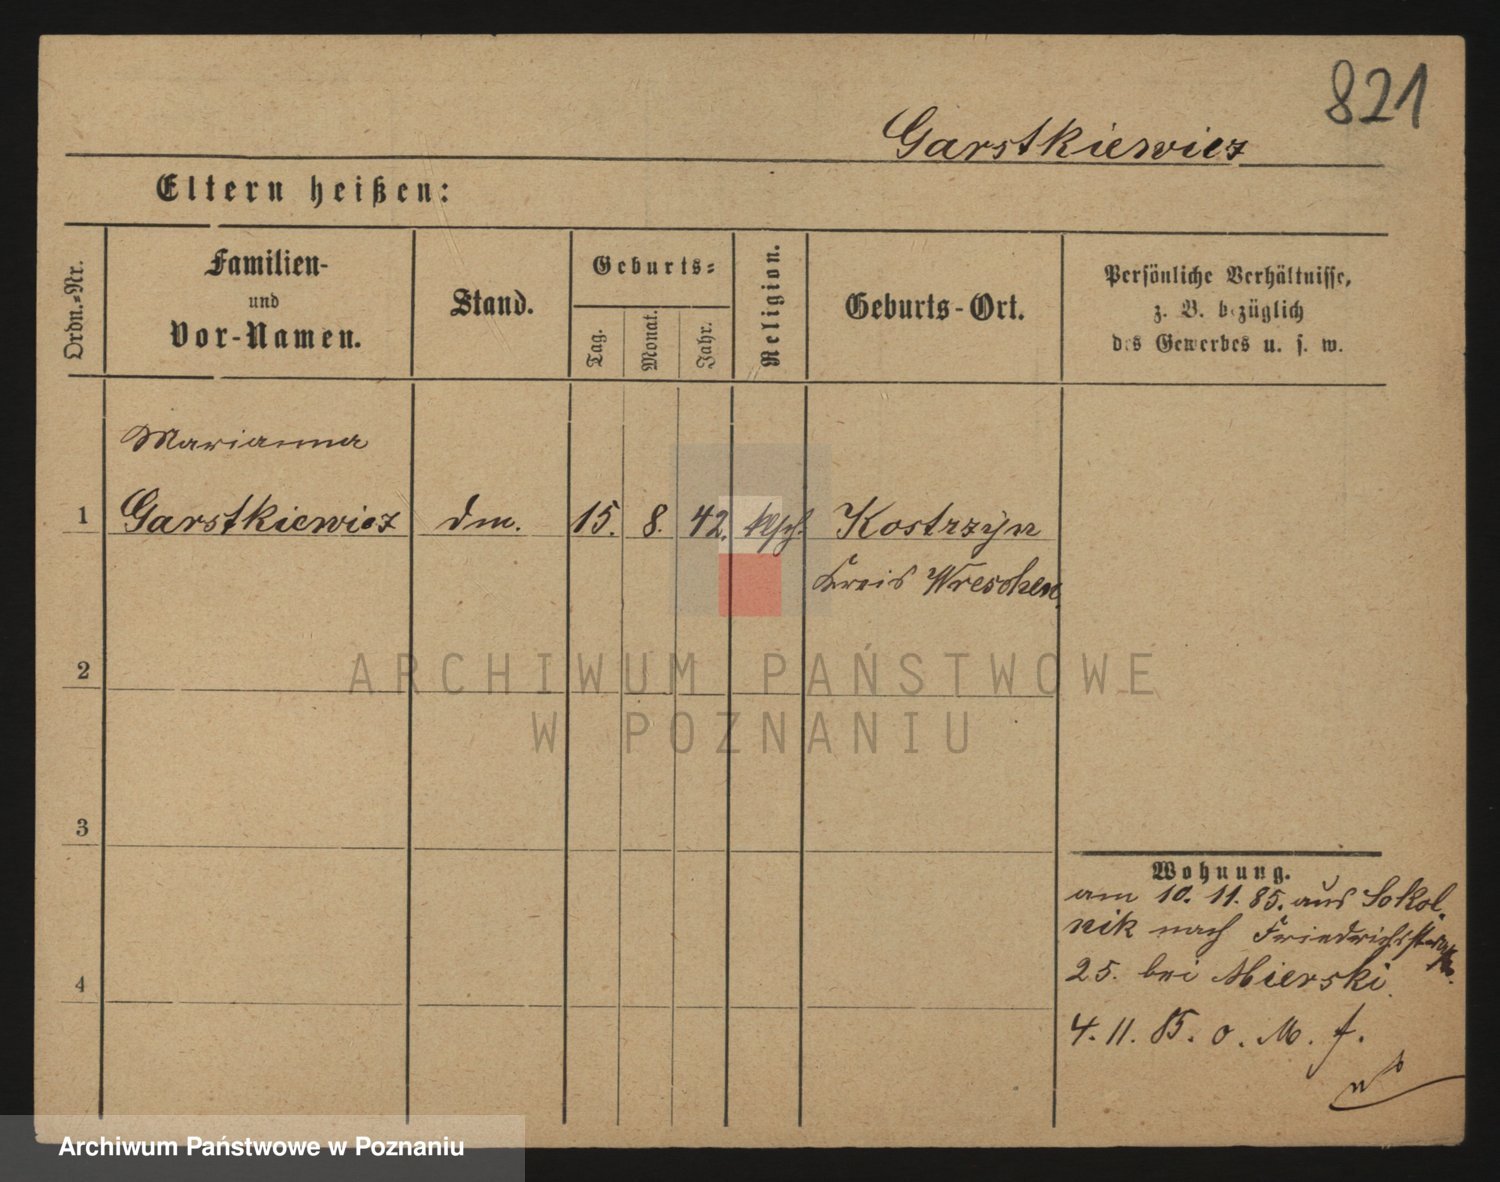 821
Garstkiewicz
Eltern heißen:
Ordn.-Nr.
Familien-
und
Vor-Namen.
Stand.
Geburts-
Tag.
Monat.
Jahr.
Religion.
Geburts-Ort.
Persönliche Verhältnisse,
z. B. bezüglich
des Gewerbes u. s. w.
Marianna
1 Garstkiewicz 15. 8. 42. Kostrzyn
Kreis Wreschen
2
3
4
Wohnung.
am 10. 11. 85. aus Sokol-
nik nach Friedrichsstraße
25. bei Mierski.
4. 11. 85. o. M. f.
ARCHIWUM PAŃSTWOWE
W POZNANIU
Archiwum Państwowe w Poznaniu